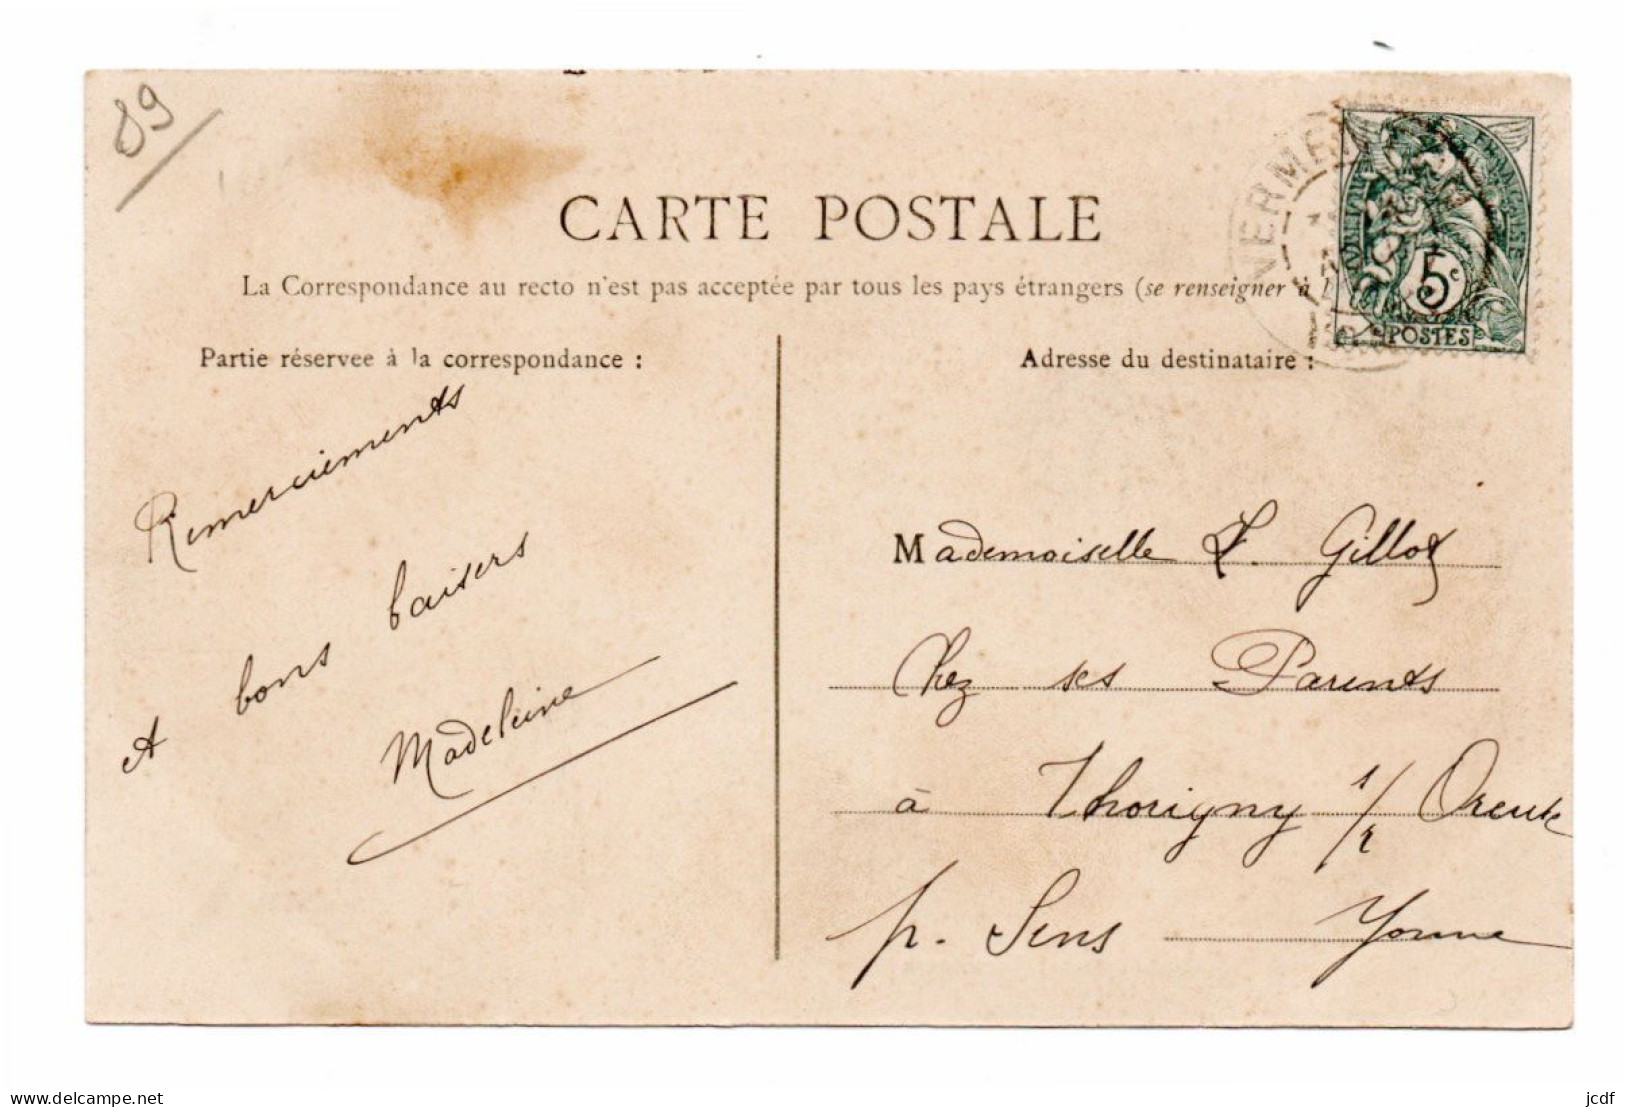 89
CARTE POSTALE
La Correspondance au recto n'est pas acceptée par tous les pays étrangers (se renseigner à
RÉPUBLIQUE FRANÇAISE
5c
POSTES
Partie réservee à la correspondance :
Remerciements
et bons baisers
Madeleine
Adresse du destinataire :
Mademoiselle L. Gillot
Chez ses Parents
à Thorigny s/ Oreuse
p. Sens Yonne
www.delcampe.net
jcdf